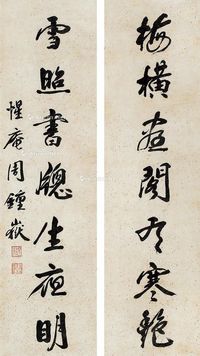 梅橫畫閣有寒艷
雪照書牕生夜明
惺庵周鍾嶽